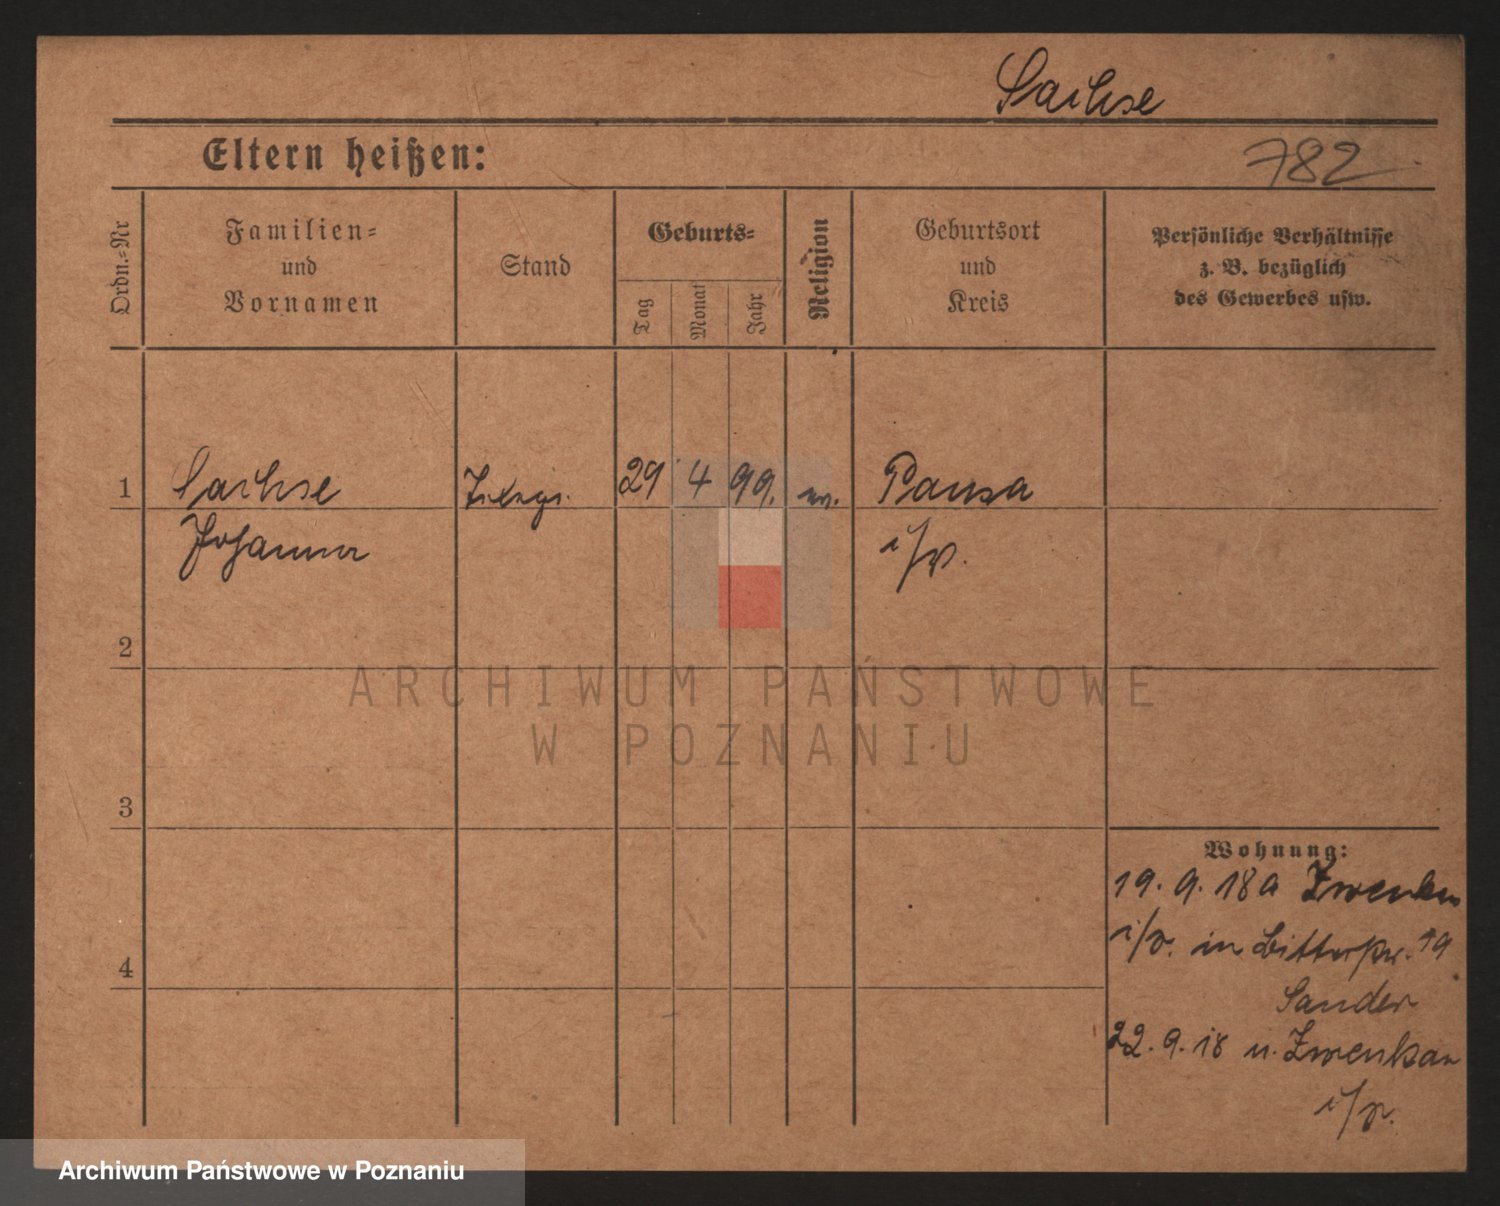 Sachse
Eltern heißen:
782
Ordn.=Nr
Familien=
und
Vornamen
Stand
Geburts=
Tag
Monat
Jahr
Religion
Geburtsort
und
Kreis
Persönliche Verhältnisse
z. B. bezüglich
des Gewerbes usw.
1 Sachse 29 4 99. ev. Pausa
Johanna i/V.
2
ARCHIWUM PAŃSTWOWE
W POZNANIU
3
Wohnung:
19. 9. 18 a Zwenkau
i/S. in 19
4
Sander
22. 9. 18 n. Zwenkau
Archiwum Państwowe w Poznaniu